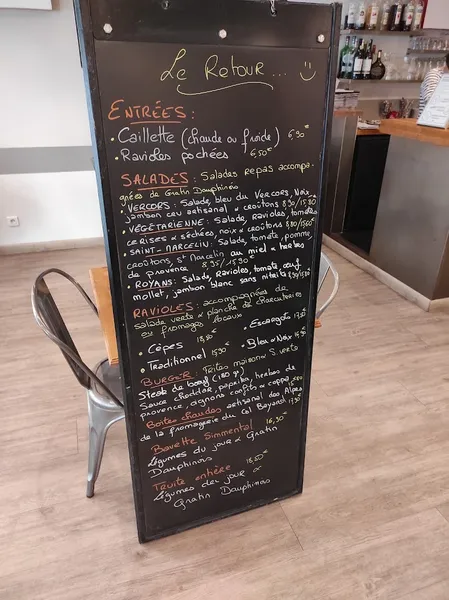 Le Retour...
ENTRÉES:
• Caillette (chaude ou froide) 6,90€
• Ravioles pochées 6,50€
SALADES: Salades repas accompa-
gnées de Gratin Dauphinois
• VERCORS: Salade, bleu du Vercors, Noix,
jambon cru artisanal & croûtons 8,90/15,80
• VÉGÉTARIENNE: Salade, Ravioles, tomates
cerises & séchées, noix & croûtons
• SAINT-MARCELIN: Salade, tomate, pomme,
croûtons, St Marcelin au miel & herbes
de provence 8,95/15,90€
• ROYANS: Salade, Ravioles, tomate, oeuf
mollet, jambon blanc sans nitrite
RAVIOLES: accompagnées de
salade verte & planche de charcuteries
ou fromages locaux
• Cèpes 18,50€
• Escargots
• Traditionnel 15,90€
• Bleu & Noix
BURGER: Frites maison & S. verte
Steak de boeuf (180 gr)
Sauce cheddar, paprika, herbes de
provence, oignons confits & coppa
Boites chaudes artisanal des Alpes
de la fromagerie du Col Bayard
Bavette Simmental 16,90€
Légumes du jour & Gratin
Dauphinois
Truite entière 18,50€
Légumes du jour &
Gratin Dauphinois